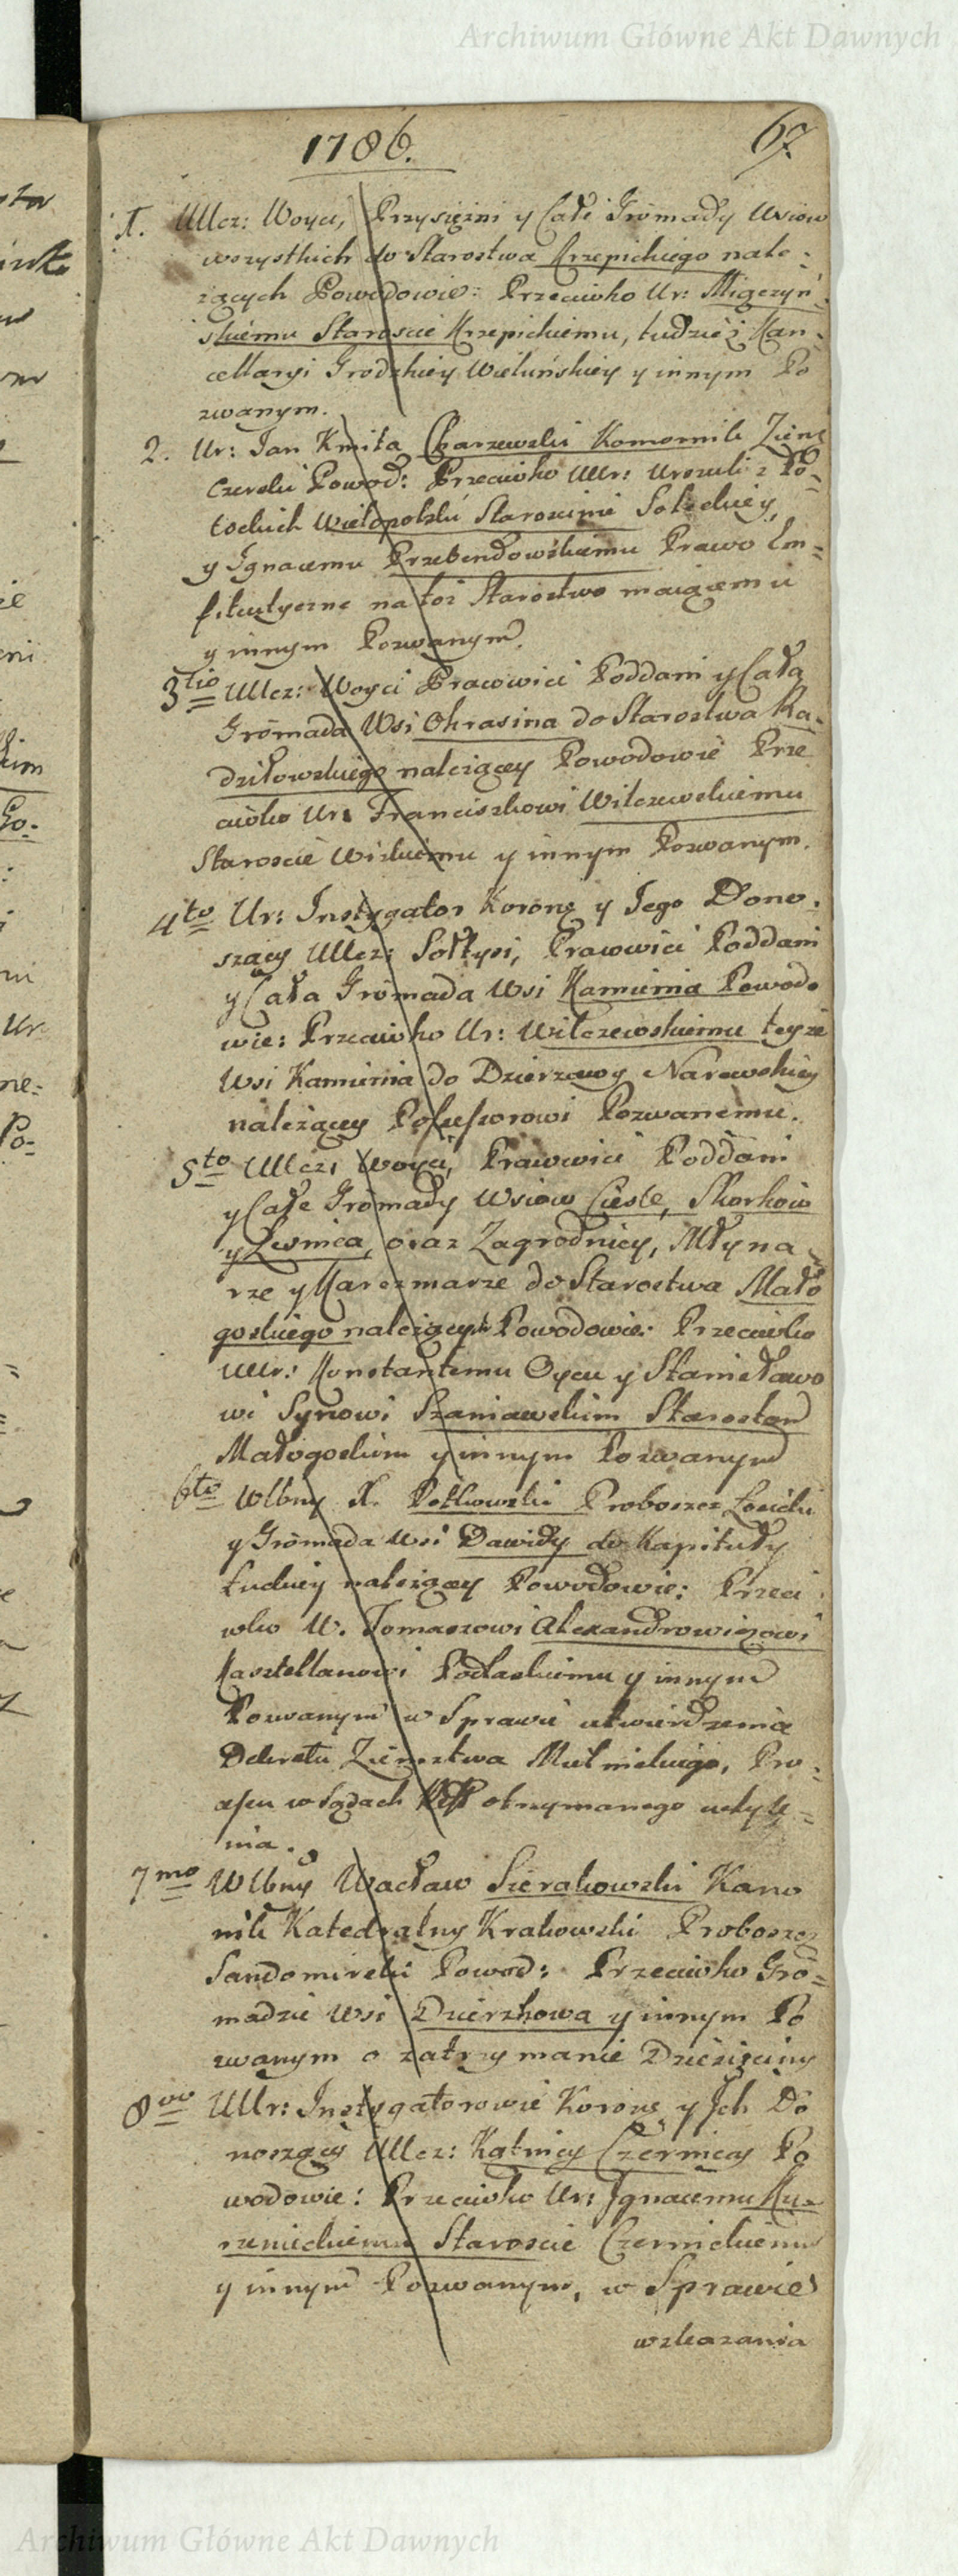 Archiwum Główne Akt Dawnych
1786.
67.
1. UUcz: Woyci, Przysiężni y Całe Gromady Wsiow
wszystkich do Starostwa Krzepickiego nale-
żących Powodowie: Przeciwko Ur: Męczyń-
skiemu Staroscie Krzepickiemu, tudzież Kan-
cellaryi Grodzkiey Wieluńskiey y innym Po
zwanym.
2. Ur: Jan Kmita Charzewski Komornik Ziems:
Czerski Powod: Przeciwko UUr: Urszuli z Po-
tockich Wielopolski Starościnie Soleckiey,
y Ignacemu Przebendowskiemu Prawo Em=
fiteutyczne na toż Starostwo maiącemu
y innym Pozwanym.
3tio UUcz: Woyci Pracowici Poddani y Cała
Gromada Wsi Okrasina do Starostwa Ra-
dziłowskiego należącey Powodowie Prze
ciwko Ur: Franciszkowi Wilczewskiemu
Staroscie Wizkiemu y innym Pozwanym.
4to Ur: Instygator Korony y Jego Dono-
szący UUcz: Sołtysi, Pracowici Poddani
y Cała Gromada Wsi Kamienia Powodo
wie: Przeciwko Ur: Wilczewskiemu teyże
Wsi Kamienia do Dzierzawy Narewskiey
należącey Possessorowi Pozwanemu.
5to UUcz: Woyci, Pracowici Poddani
y Całe Gromady Wsiow Ciesle, Skorkow
y Lesnica, oraz Zagrodnicy, Młyna
rze y Karczmarze do Starostwa Mało
goskiego należących Powodowie: Przeciwko
UUr: Konstantemu Oycu y Stanisławo
wi Synowi Szaniawskim Starostom
Małogoskim y innym Pozwanym
6to Wlbny X. Potkowski Proboszcz Łosicki
y Gromada Wsi Dawidy do Kapituły
Łuckiey należącey Powodowie: Przeci
wko W. Tomaszowi Alexandrowiczowi
Kasztellanowi Podlaskiemu y innym
Pozwanym w Sprawie utwierdzenia
Dekretu Ziemstwa Mielnickiego, Pro-
cessu w Sądach otrzymanego uchyle=
nia.
7mo Wlbny Wacław Sierakowski Kano
nik Katedralny Krakowski Proboszcz
Sandomirski Powod: Przeciwko Gro=
madzie Wsi Dzierzkowa y innym Po
zwanym o zatrzymanie Dziesięciny
8vo UUr: Instygatorowie Korony y Ich Do
noszący UUcz: Kątnicy Czerniccy Po
wodowie: Przeciwko Ur: Ignacemu Ku-
rzenieckiemu Staroscie Czernickiemu
y innym Pozwanym, w Sprawie
wskazania
Archiwum Główne Akt Dawnych